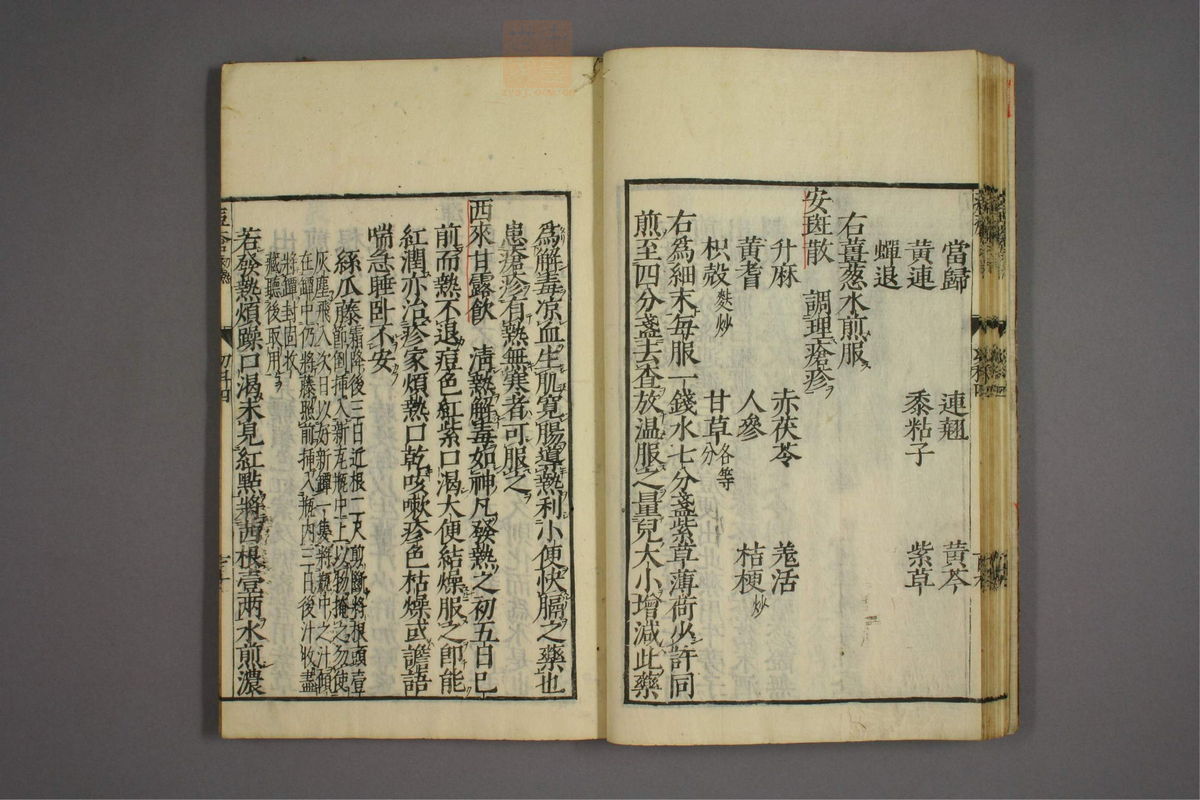 當歸 連翹 黃芩
黃連 黍粘子 紫草
蟬退
右薑葱水煎服
安斑散 調理瘡疹
升麻 赤茯苓 羗活
黃耆 人參 桔梗炒
枳殼麩炒 甘草各等分
右為細末每服一錢水七分盞紫草薄荷少許同
煎至四分盞去査放温服之量兒大小增減此藥
為解毒凉血生肌寬腸導熱利小便快膈之藥也
患瘡疹有熱無寒者可服之
西來甘露飲 清熱解毒如神凡發熱之初五日已
前而熱不退痘色紅紫口渴大便結燥服之卽能
紅潤亦治疹家煩熱口乾咳嗽疹色枯燥或譫語
喘急睡卧不安
絲瓜藤霜降後三百近根二尺剪斷將根頭壹
節倒挿入新瓦瓶中上以物掩之勿使
灰塵飛入次日以好新罈一隻將瓶中之汁傾
在罈中仍將藤照前挿入瓶内三日後汁收盡
將罈封固收
藏聽後取用
若發熱煩躁口渴未見紅點將茜根壹兩水煎濃
初科四